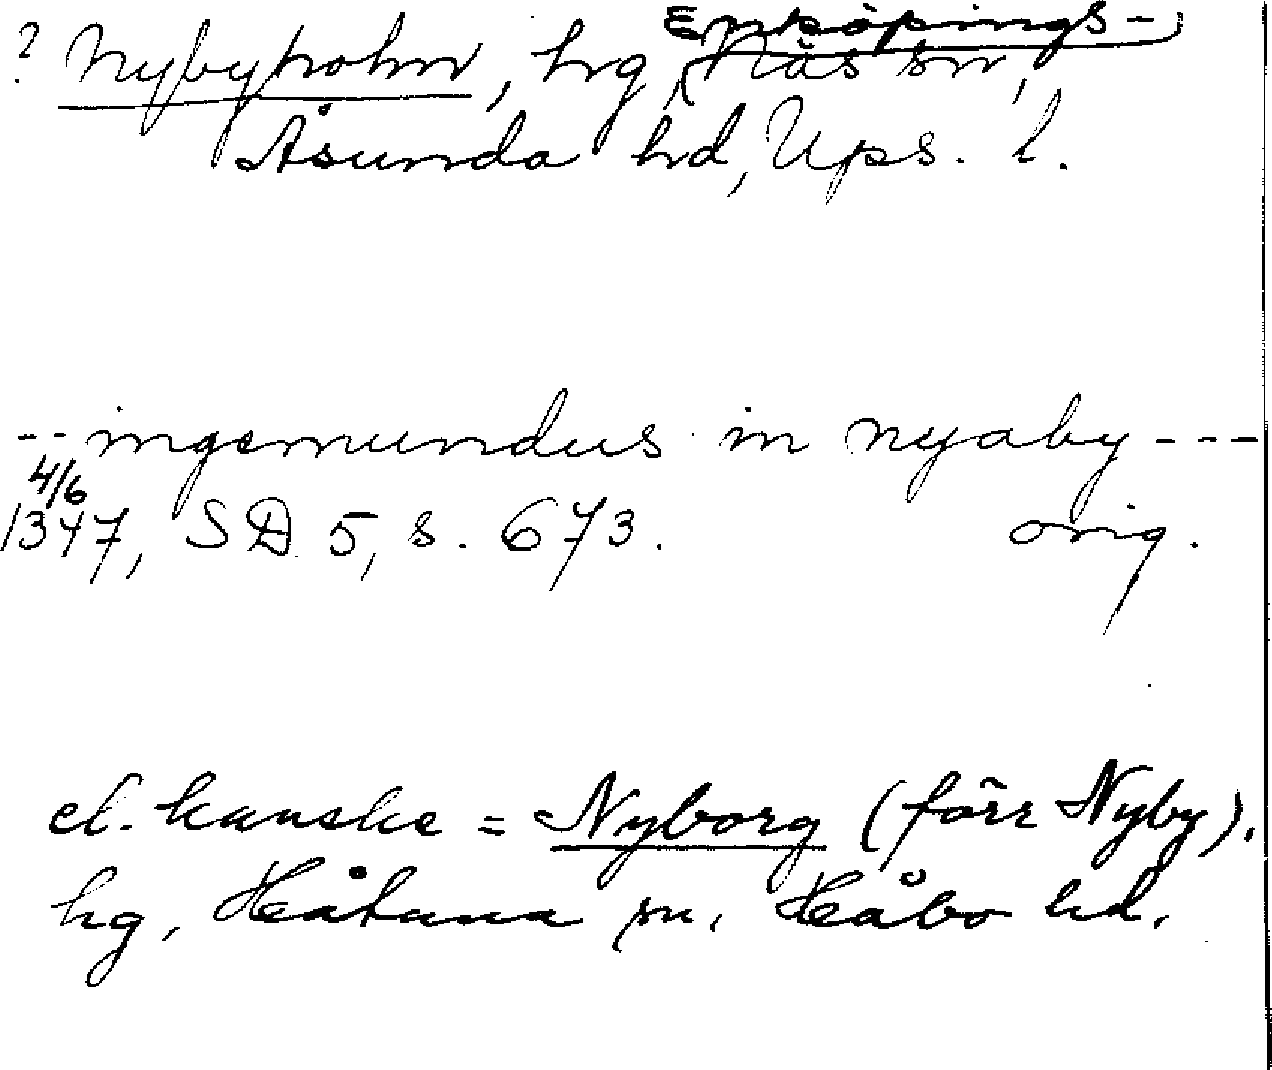 ? Nybyholm, hg, Enköpings-
Näs sn,
Åsunda hd, Ups. l.
-- ingemundus in nyaby ---
4/6
1347, SD 5, s. 673. orig.
el. kanske = Nyborg (förr Nyby),
hg, Håtuna sn, Håbo hd.